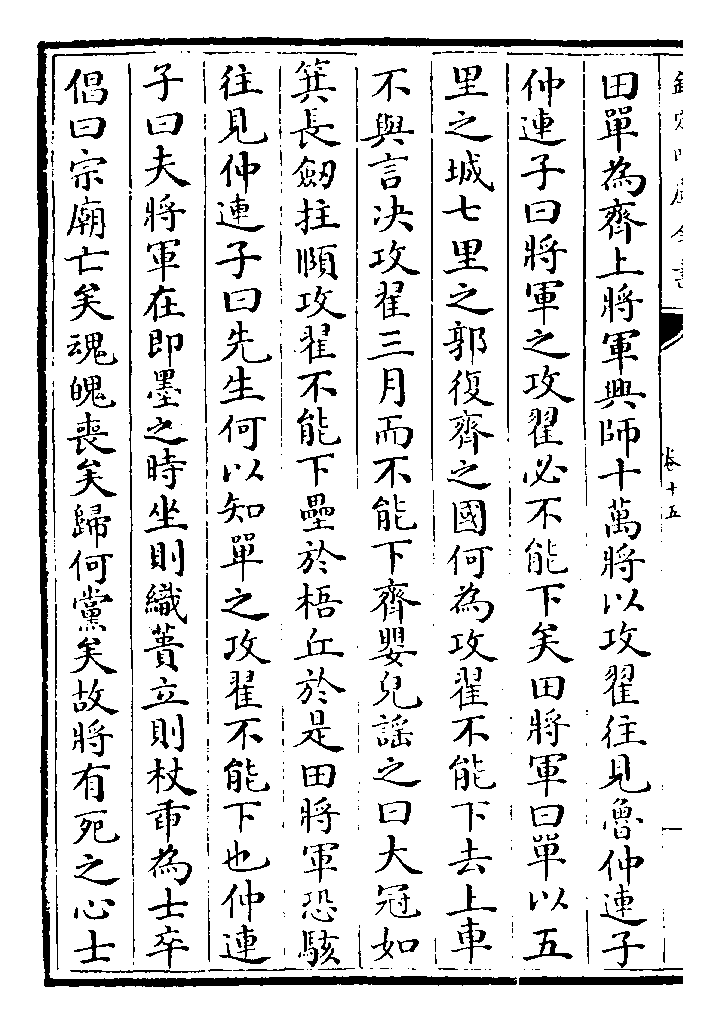 卷十五
田單為齊上將軍興師十萬將以攻翟往見魯仲連子
仲連子曰將軍之攻翟必不能下矣田將軍曰單以五
里之城七里之郭復齊之國何為攻翟不能下去上車
不與言决攻翟三月而不能下齊嬰兒謡之曰大冠如
箕長劒拄頤攻翟不能下壘於梧丘於是田將軍恐駭
往見仲連子曰先生何以知單之攻翟不能下也仲連
子曰夫將軍在即墨之時坐則織蕢立則杖臿為士卒
倡曰宗廟亡矣魂魄喪矣歸何黨矣故將有死之心士